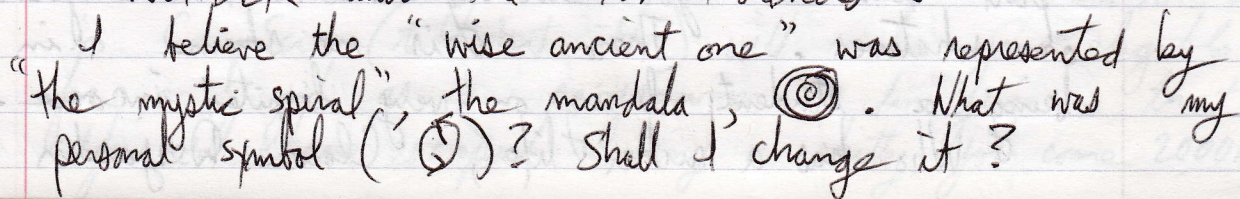 I believe the "wise ancient one" was represented by
"the mystic spiral", the mandala, . What was my
personal symbol ( )? Shall I change it?